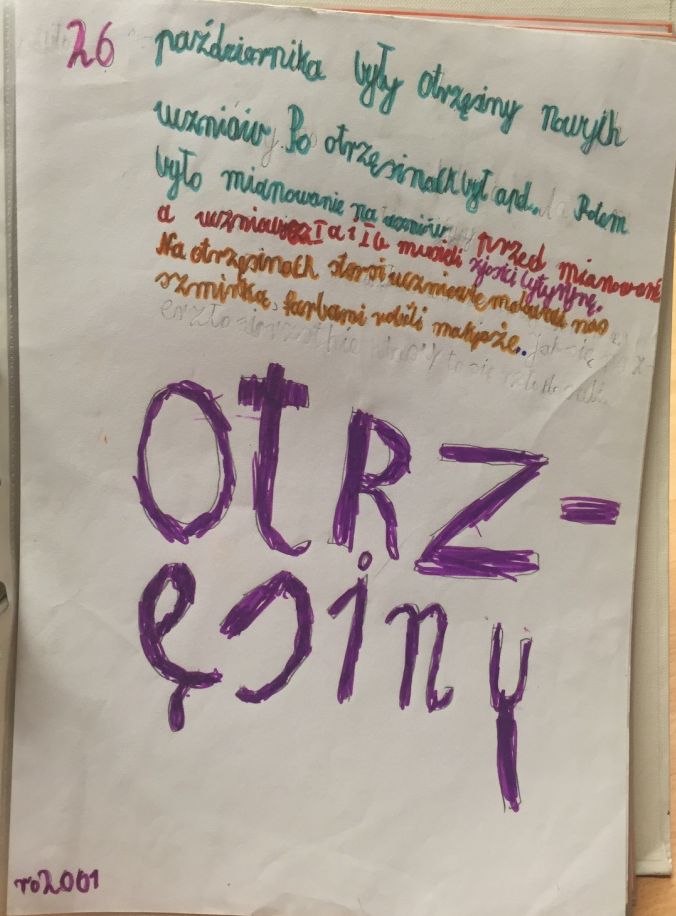 26 października były otrzęsiny nowych
uczniów. Po otrzęsinach był apel. Potem
było mianowanie na uczniów
a uczniowie z Ia i Ib musieli przed mianowani
zjeść cytrynę.
Na otrzęsinach starsi uczniowie malowali nas
szminką, farbami robili makijaże..
OtRZ-
ęsiny
ro2001